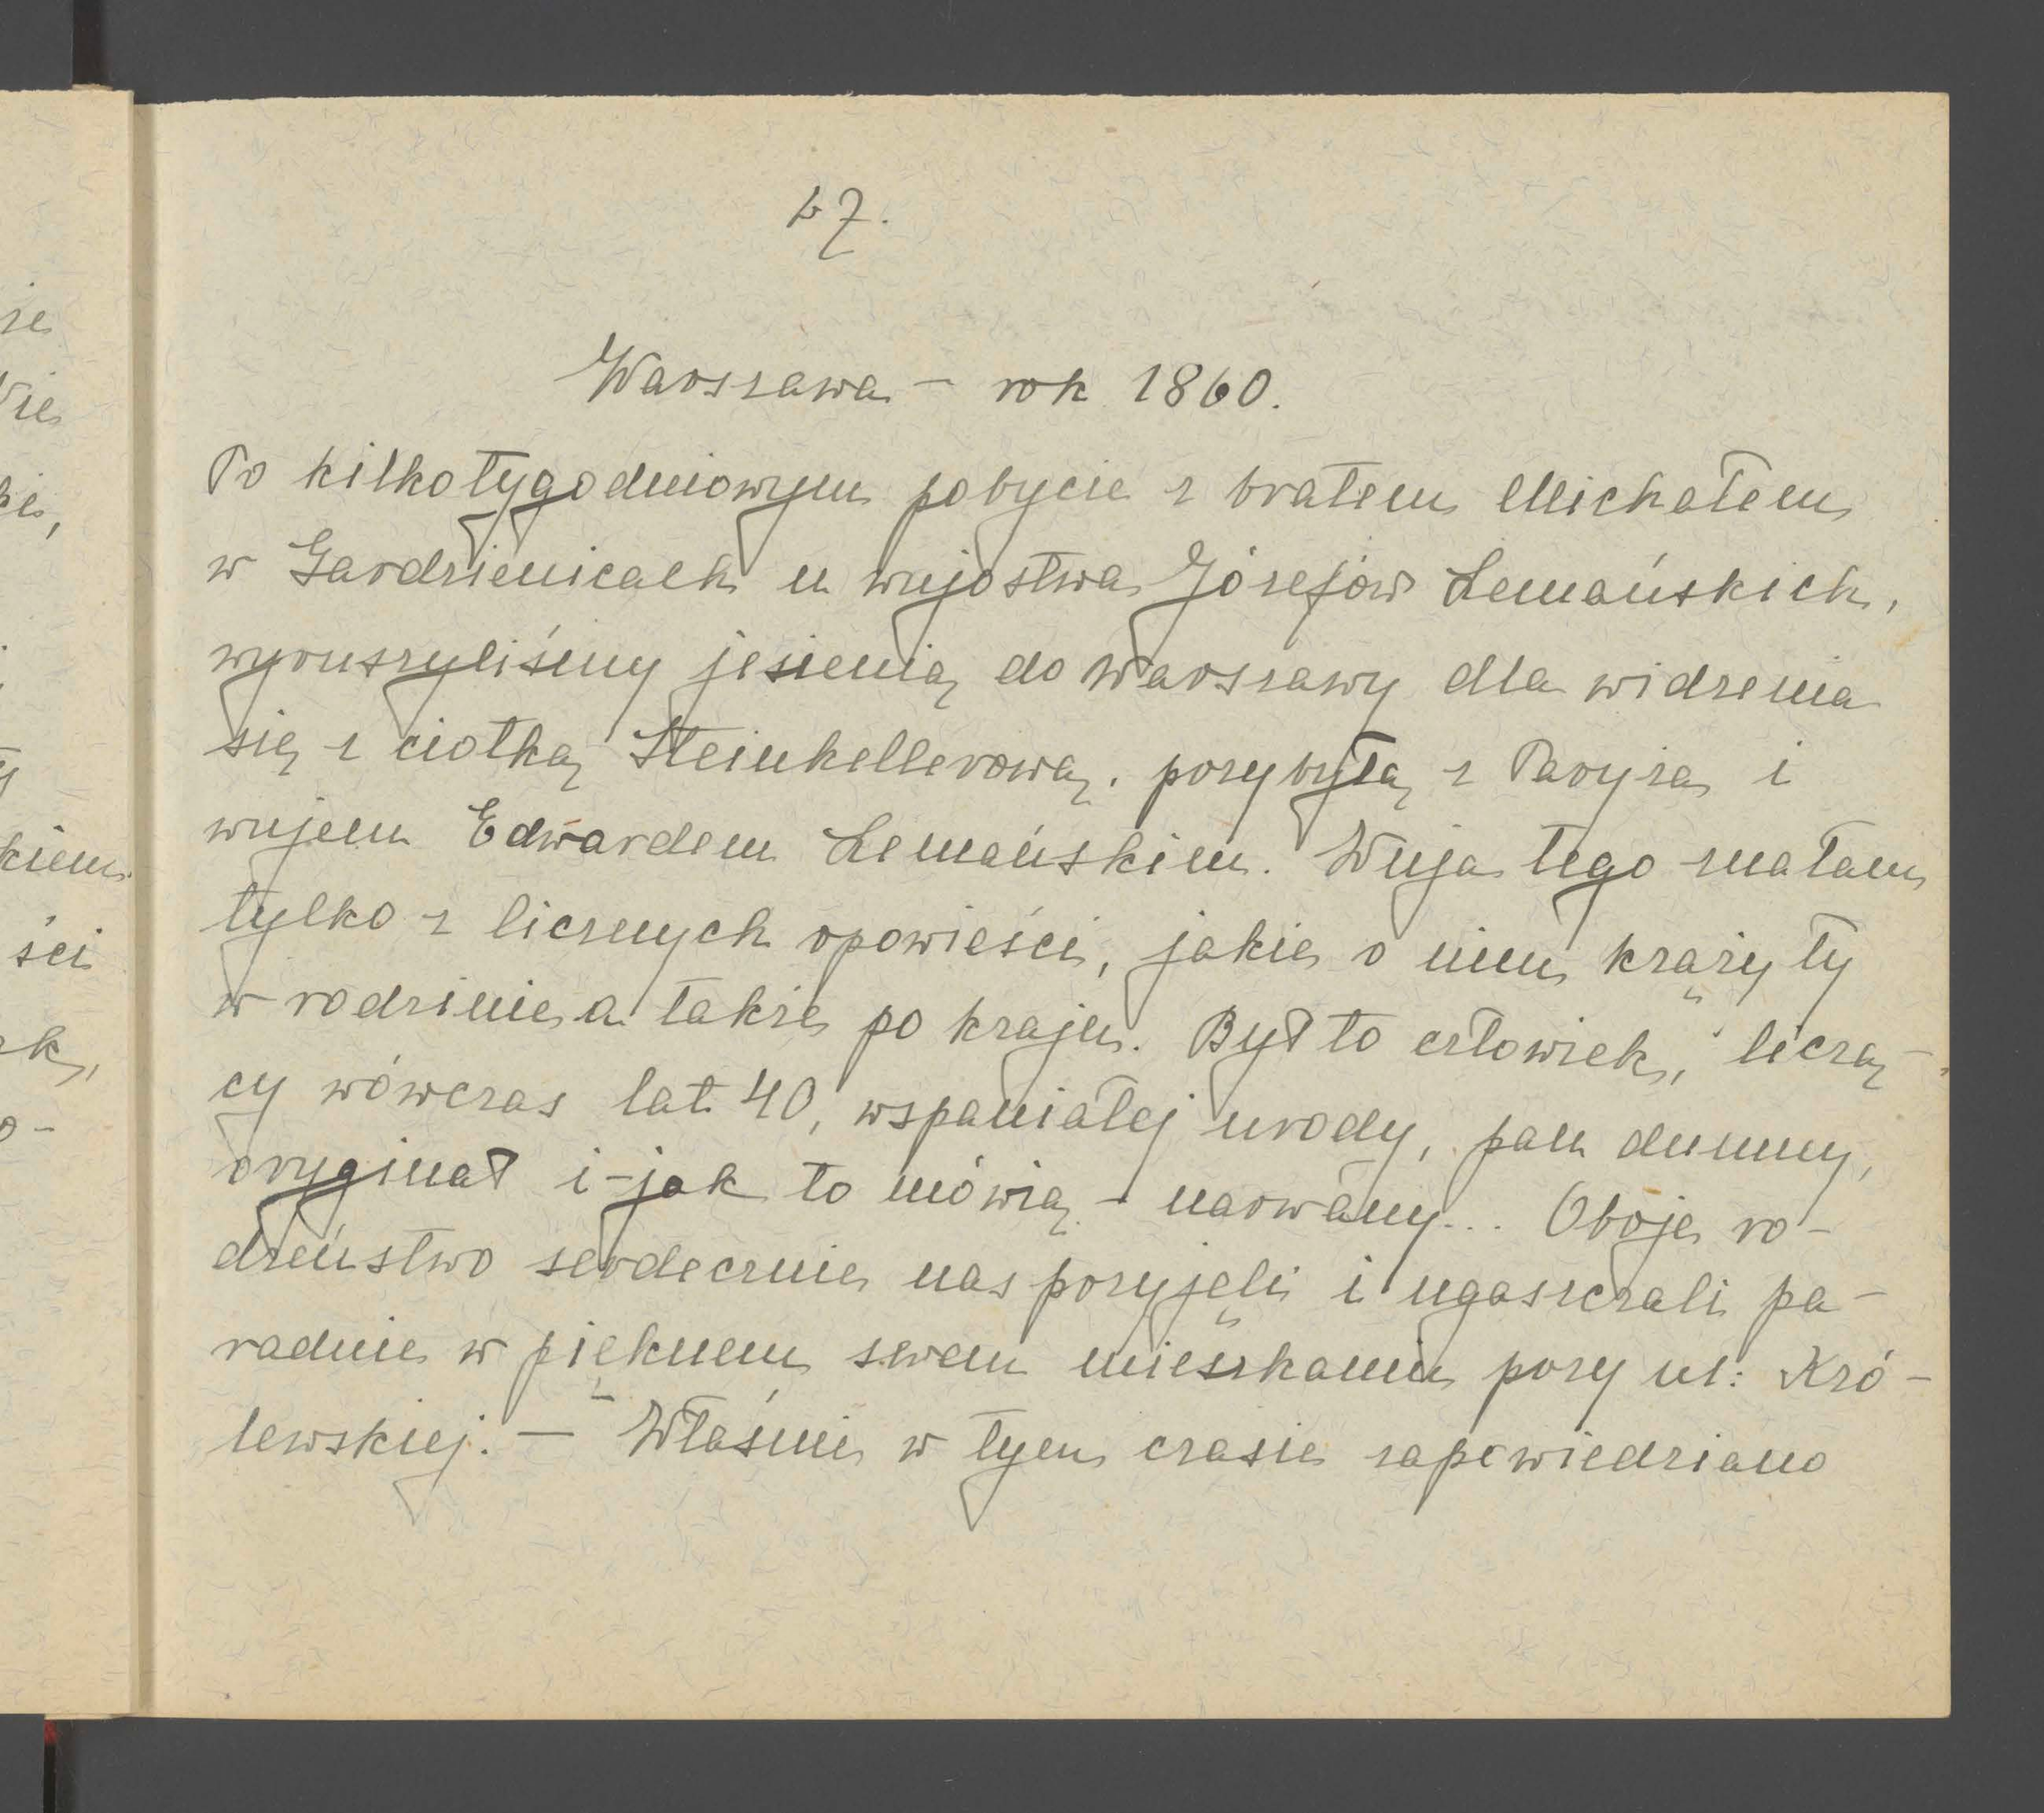 67.
Warszawa – rok 1860.
Po kilkotygodniowym pobycie z bratem Michałem
w Gardzienicach u wujostwa Józefów Lemańskich,
wyruszyliśmy jesienią do Warszawy dla widzenia
się z ciotką Steinkellerową, przybyłą z Paryża i
wujem Edwardem Lemańskim. Wuja tego znałam
tylko z licznych opowieści, jakie o nim krążyły
w rodzinie a także po kraju. Był to człowiek, liczą-
cy wówczas lat 40, wspaniałej urody, pan dumny,
oryginał i – jak to mówią – narwany... Oboje ro-
dzeństwo serdecznie nas przyjęli i ugaszczali pa-
radnie w pięknem swem mieszkaniu przy ul: Kró-
lewskiej. – Właśnie w tym czasie zapowiedziano
kiem
ści